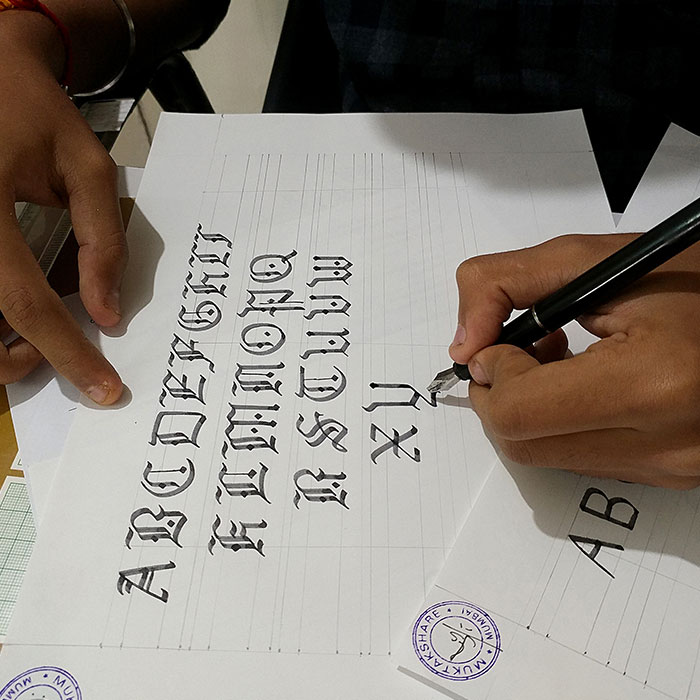 ABCDEFGHIJ
KLMNOPQ
RSTUVW
XY
AB
MUKTAKSHARE • MUMBAI •